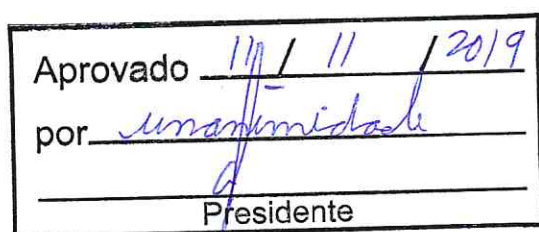 Aprovado 11 / 11 / 2019
por unanimidade
Presidente